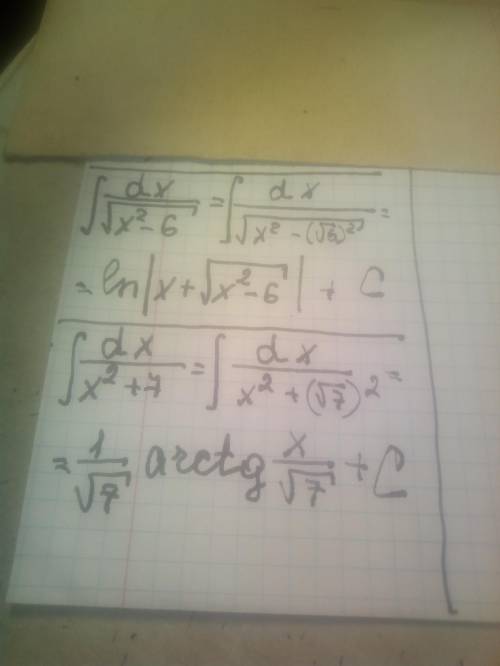 ∫ dx/√(x²-6) = ∫ dx/√(x²-(√6)²) =
= ln|x+√(x²-6)| + C
∫ dx/(x²+7) = ∫ dx/(x²+(√7)²) =
= 1/√7 arctg x/√7 + C